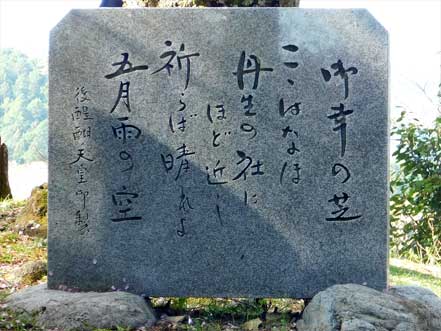 御幸の芝
こゝはなほ
丹生の社に
ほど近し
祈らば晴れよ
五月雨の空
後醍醐天皇御製